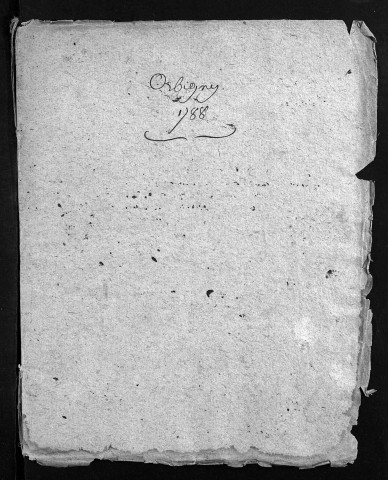 Orbigny
1788